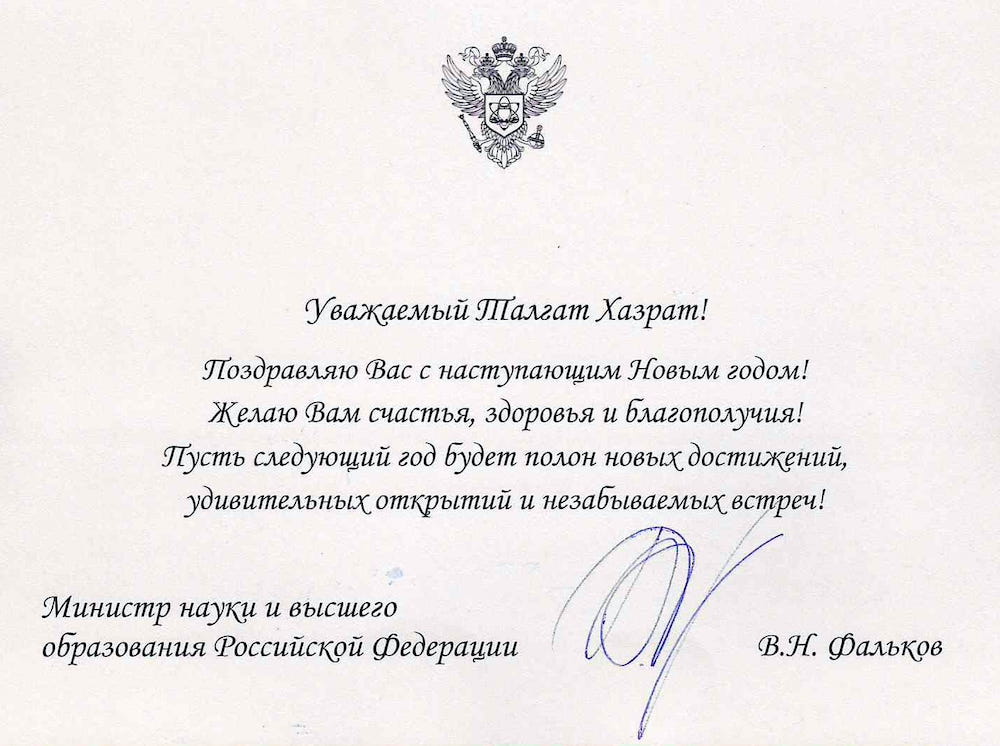 Уважаемый Талгат Хазрат!
Поздравляю Вас с наступающим Новым годом!
Желаю Вам счастья, здоровья и благополучия!
Пусть следующий год будет полон новых достижений,
удивительных открытий и незабываемых встреч!
Министр науки и высшего
образования Российской Федерации
В.Н. Фальков